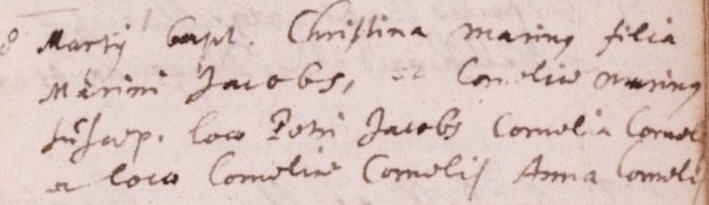 8 Martij bapt. Christina Marinus filia
Marini Jacobs, et Corneliae Marinus
suscep. loco Petri Jacobs Cornelia Cornel
et loco Corneliae Cornelis Anna Corneli